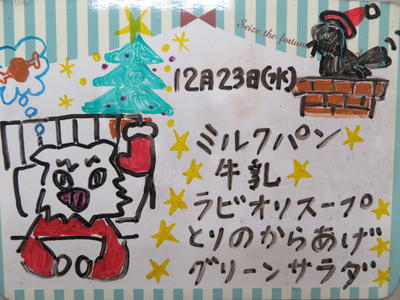 Seize the fortune
12月23日(水)
ミルクパン
牛乳
ラビオリスープ
とりのからあげ
グリーンサラダ